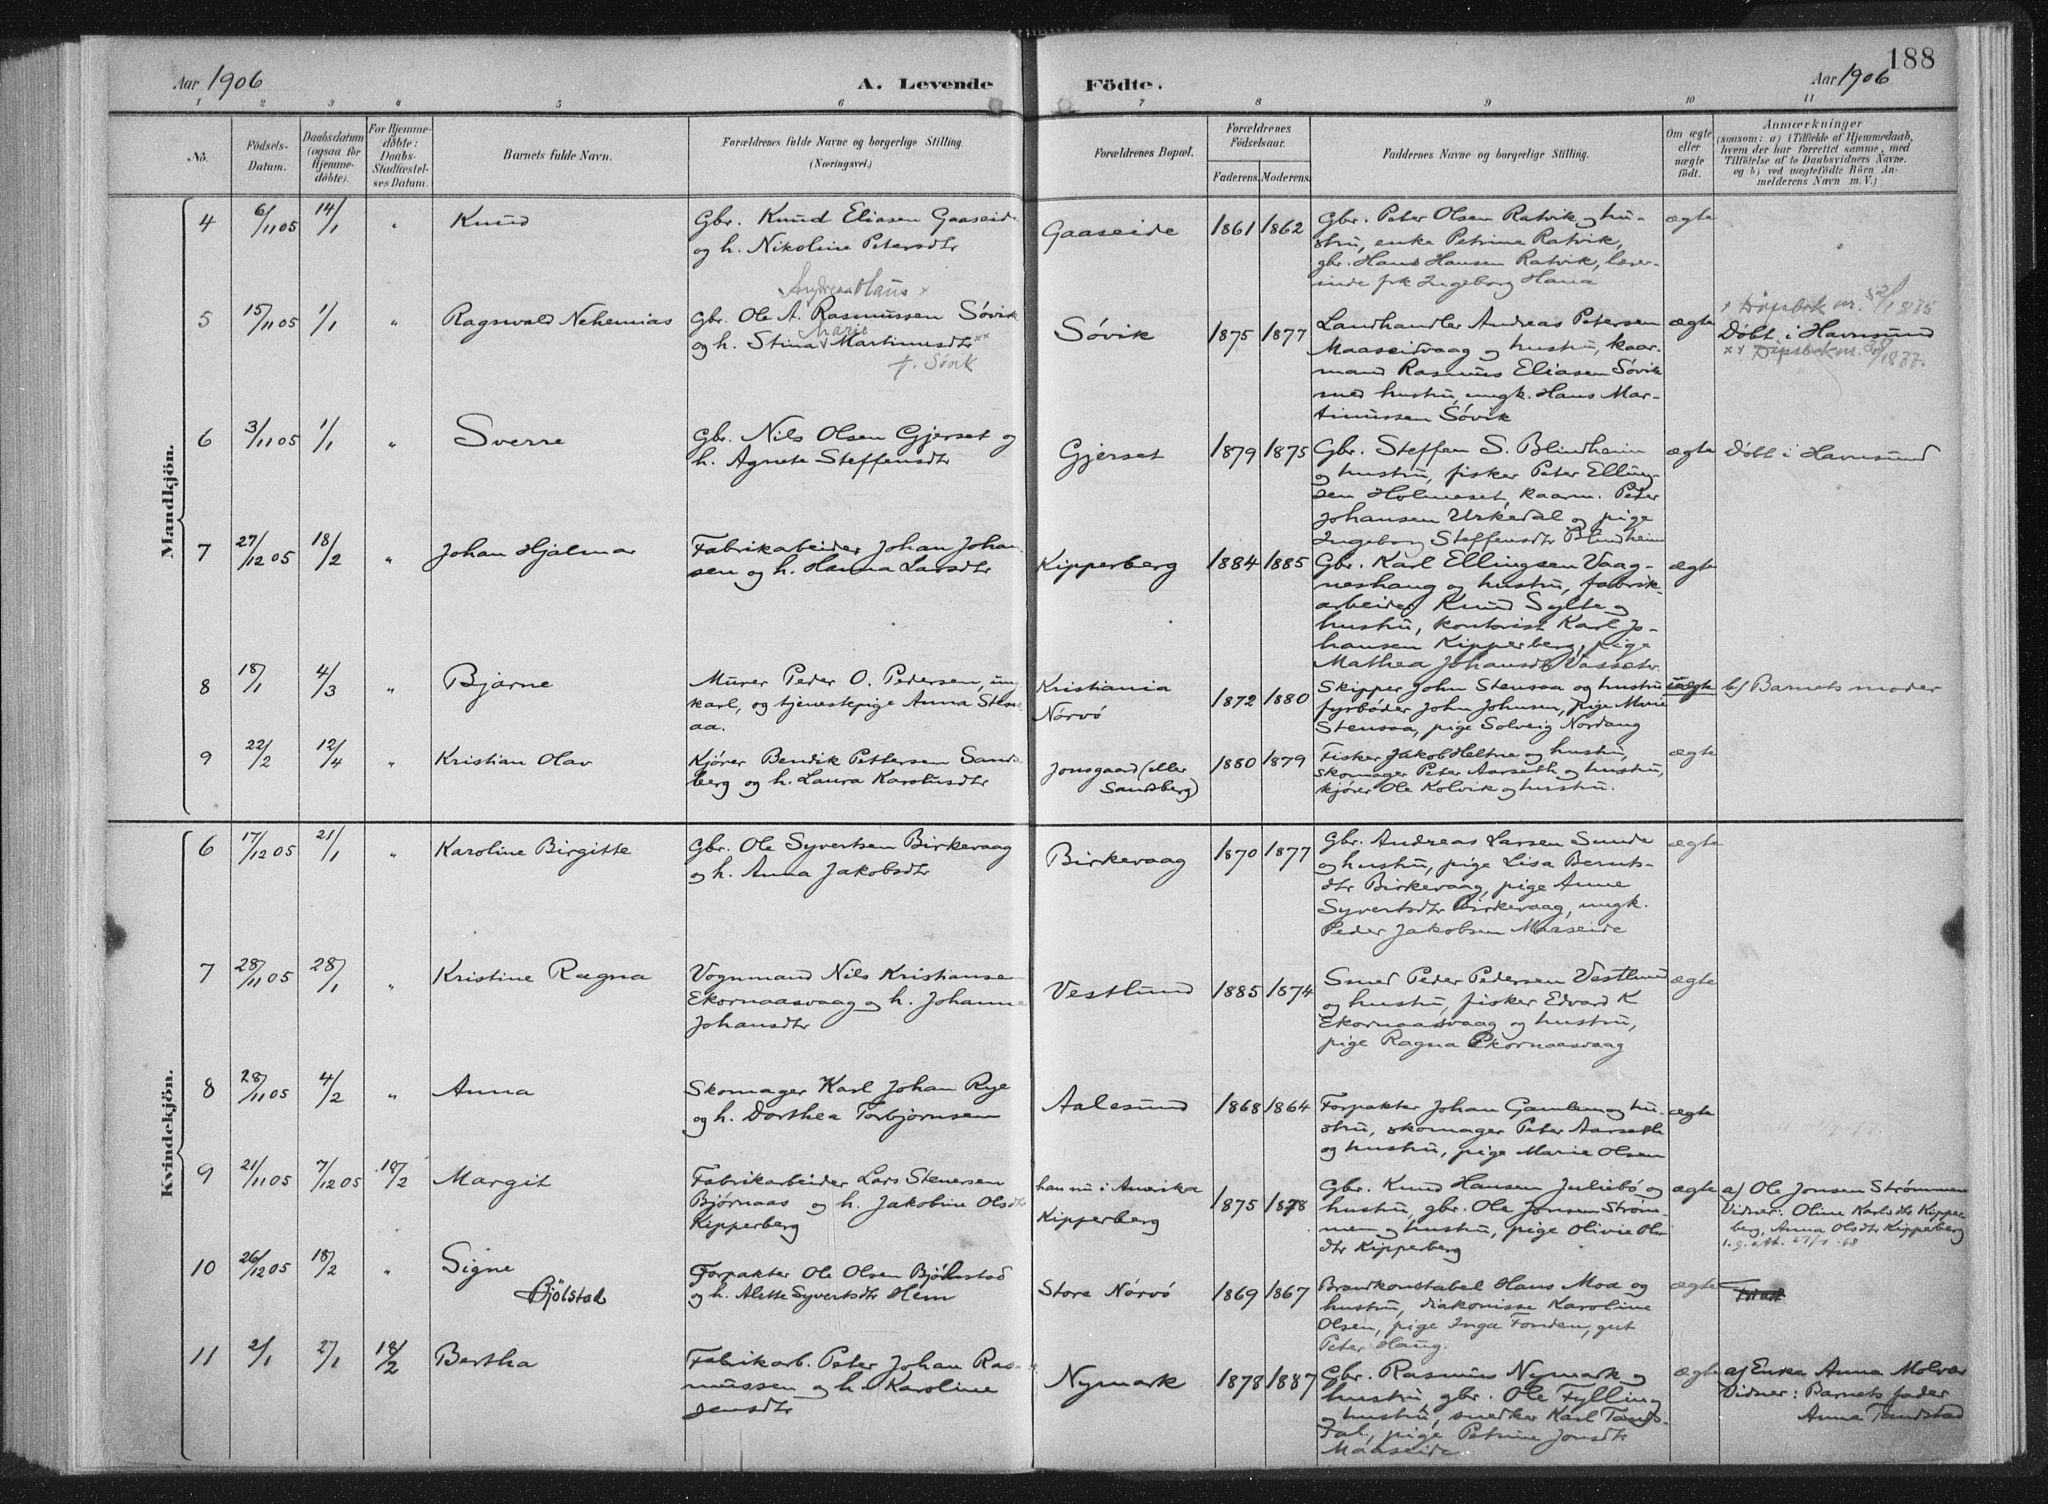 188
Aar 1906
A. Levende
Födte.
Aar 1906
1 2 3 4 5 6 7 8 9 10 11
No.
Födsels-
Datum.
Daabsdatum
(ogsaa for
Hjemme-
döbte).
For Hjemme-
döbte:
Daabs-
Stadfæstel-
ses Datum.
Barnets fulde Navn.
Forældrenes fulde Navne og borgerlige Stilling.
(Næringsvei.)
Forældrenes Bopæl.
Forældrenes
Födselsaar.
Faderens. Moderens.
Faddernes Navne og borgerlige Stilling.
Om ægte
eller
uægte
födt.
Anmærkninger
(saasom: a) i Tilfælde af Hjemmedaab,
hvem der har forrettet samme, med
Tilföielse af to Daabsvidners Navne.
og b) ved uægtefödte Börn An-
melderens Navn m.V.)
Mandkjön.
4 6/11 05 14/1 " Knud
Gbr. Knud Eliasen Gaaseide
og h. Nikoline Petersdtr
Gaaseide 1861 1862
Gbr. Peter Olsen Ratvik og hu-
stru, enke Petrine Ratvik,
gbr. Hans Hansen Ratvik, lærer-
inde frk Ingeborg Hana
ægte
5 15/11 05 1/1 " Ragnvald Nehemias
Andreas Olaus x
Gbr. Ole A. Rasmussen Søvik
Marie
og h. Stina Martinusdtr xx
f. Søvik
Søvik 1875 1877
Landhandler Andreas Petersen
Maaseidvaag og hustru, kaar-
mand Rasmus Eliasen Søvik
med hustru, ungk. Hans Mar-
tinussen Søvik
ægte
x Dåpsbok nr. 52/1875
Døbt i Havnsund
xx Dåpsbok nr. /1877.
6 3/11 05 1/1 " Sverre
Gbr. Nils Olsen Gjerset og
h. Agnete Steffensdtr
Gjerset 1879 1875
Gbr. Steffen S. Blindheim
og hustru, fisker Peter Elling-
sen Holmeset, kaarm. Peter
Johansen Urkedal og pige
Ingeborg Steffensdtr Blindheim
ægte Døbt i Havnsund
7 27/12 05 18/2 " Johan Hjalmar
Fabrikarbeider Johan Johan-
sen og h. Hanna Larsdtr
Kipperberg 1884 1885
Gbr. Karl Ellingsen Vaag-
neshaug og hustru, fabrik-
arbeider Knud Sylte og
hustru, kontorist Karl Jo-
hansen Kipperberg, pige
Mathea Johansdtr Vassetr
ægte
8 18/1 4/3 " Bjarne
Murer Peder O. Pedersen, ung-
karl, og tjenestepige Anna Stens-
aa.
Kristiania
Nørvø
1872 1880
Skipper John Stensaa og hustru
fyrbøder John Johnsen, pige Marie
Stensaa, pige Solveig Nordang
uægte b) Barnets moder
9 22/2 12/4 " Kristian Olav
Kjører Bendik Pettersen Sands-
berg og h. Laura Karolusdtr
Jonsgaard (eller
Sandsberg)
1880 1879
Fisker Jakob Heltne og hustru,
skomager Peter Aarseth og hustru,
kjører Ole Kolvik og hustru.
ægte
Kvindekjön.
6 17/12 05 21/1 " Karoline Birgitte
Gbr. Ole Syvertsen Birkevaag
og h. Anna Jakobsdtr
Birkevaag 1870 1877
Gbr. Andreas Larsen Sunde
og hustru, pige Lisa Bernts-
dtr Birkevaag, pige Anne
Syvertsdtr Birkevaag, ungk.
Peder Jakobsen Maaseide
ægte
7 28/11 05 28/1 " Kristine Ragna
Vognmand Nils Kristiansen
Ekornaasvaag og h. Johanne
Johansdtr
Vestlund 1885 1874
Smed Peder Pedersen Vestlund
og hustru, fisker Edvard K
Ekornaasvaag og hustru,
pige Ragna Ekornaasvaag
ægte
8 28/11 05 4/2 " Anna
Skomager Karl Johan Rye
og h. Dorthea Torbjørnsen
Aalesund 1868 1864
Forpakter Johan Gamlem og hu-
stru, skomager Peter Aarseth
og hustru, pige Marie Olsen
ægte
9 21/11 05 7/12 05 18/2 Margit
Fabrikarbeider Lars Stenersen
Bjørnaas og h. Jakobine Olsdtr
Kipperberg
han nu i Amerika
Kipperberg
1875 1878
Gbr. Knud Hansen Juliebø og
hustru, gbr. Ole Jonsen Strøm-
men og hustru, pige Olivie Ols-
dtr Kipperberg
ægte
a) Ole Jonsen Strømmen
Vidner: Oline Karlsdtr Kipper-
berg, Anna Olsdtr Kipperberg
10 26/12 05 18/2 " Signe
Bjölstad
Forpakter Ole Olsen Bjølstad
og h. Alette Syvertsdtr Hem
Store Nørvø 1869 1867
Brandkonstabel Hans Moa og
hustru, diakonisse Karoline
Olsen, pige Inga Fonden, gut
Peter Haug.
ægte
11 2/1 27/1 18/2 Bertha
Fabrikarb. Peter Johan Ras-
mussen og h. Karoline
Jensdtr
Nymark 1878 1887
Gbr. Rasmus Nymark og
hustru, gbr. Ole Fylling
og hustru, snedker Karl Tands-
dal, pige Petrine Jonsdtr
Maaseide
ægte
a) Enke Anna Molvær
Vidner: Barnets fader
Anna Tandstad